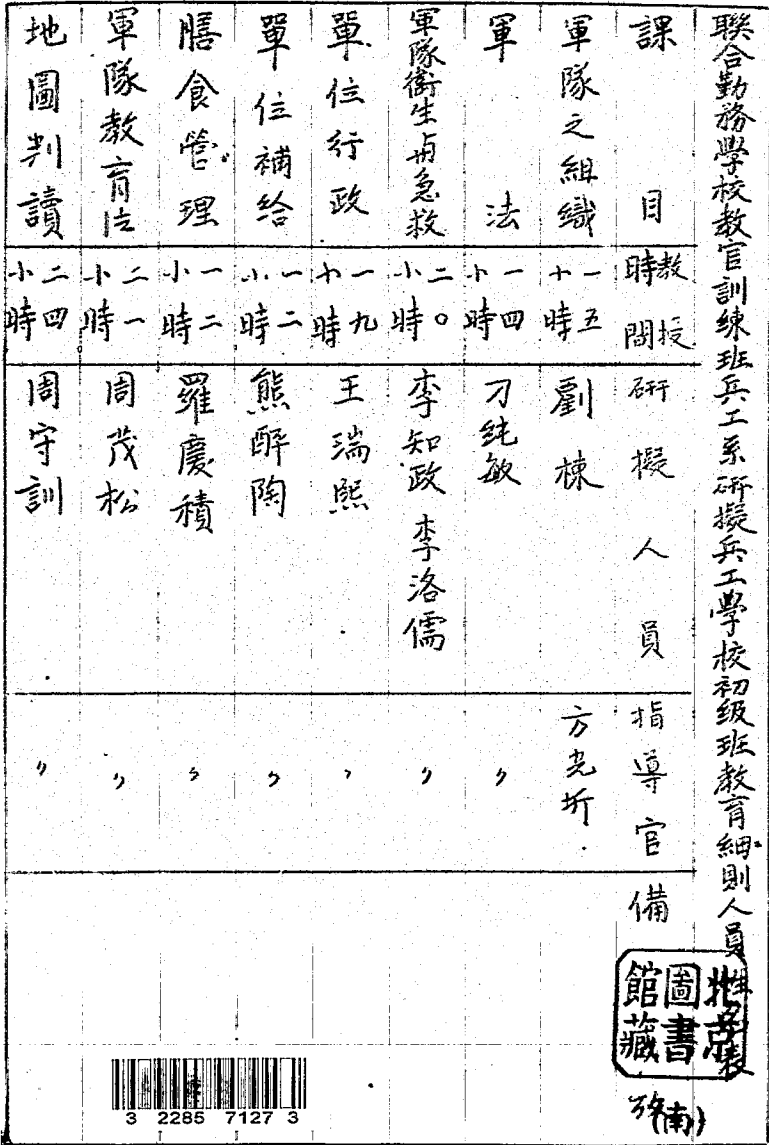 聯合勤務學校教官訓練班兵工系研擬兵工學校初級班教育細則人員姓名表
課目 教授時間 研擬人員 指導官 備攷
軍隊之組織 一五小時 劉棟 方光圻
軍法 一四小時 刁純敏 〃
軍隊衛生與急救 二〇小時 李知政 李洛儒 〃
單位行政 一九小時 王瑞熙 〃
單位補給 一二小時 熊醉陶 〃
膳食管理 一二小時 羅慶積 〃
軍隊教育法 二一小時 周茂松 〃
地圖判讀 二四小時 周守訓 〃
北京圖書館藏
(南)
3 2285 7127 3